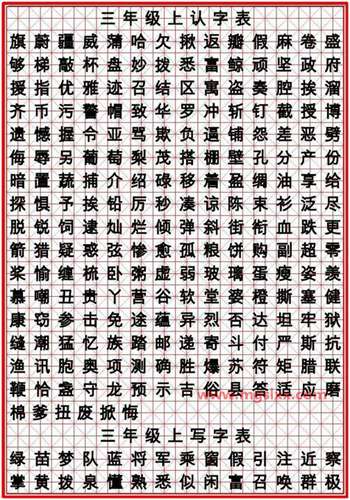 三年级上认字表
旗蔚疆威蒲哈欠揪返瓣假麻卷盛
够梯敲杯盘妙拨悉富鲸顽坚政府
援指优雅迹召结区寓盗奏腔挨溜
齐币污警帽致华罗冲斩钉截授博
遗憾握令亚骂欺负逼铺怨差恶劈
侮辱另葡萄梨茂搭棚壁孔分产份
暗置蔬捕介绍碌移着盈绸油享给
探惧予挨铅厉秒凑谅陈束衫泛尽
脱锐饲逮灿烂倾弹斜街衔血跌更
箭猎疑惑弦惨愈孤粮饼购副超零
桨愉缠梳卧粥虚弱玻璃蛋瘦姿羡
慕嘲丑贵丫营谷软堂婆橙撕塞健
康窃参击免途蕴异烈否达坦牢狱
缝潮猛忆族踏邮递寄斗付严斯抗
渔讯胞奥项测确胜爆苏符矩腊联
鞭恰盏守龙预示吉俗县答适应磨
棉爹扭废掀悔
三年级上写字表
绿苗梦队蓝将军乘窗假引注近察
掌黄拨泉懂熟悉似闲富召唤群极
www.mgslxx.com